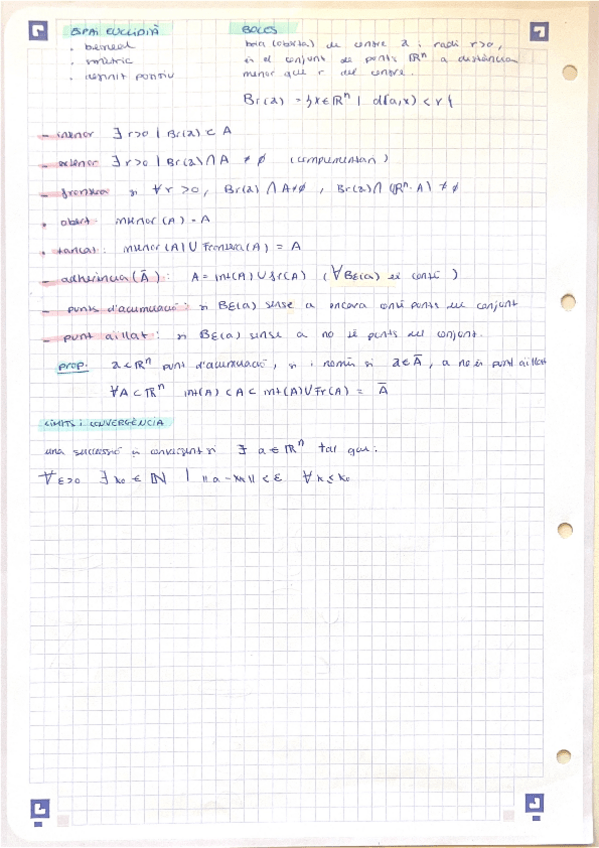 ESPAI EUCLIDIÀ
· bilineal
· simètric
· definit positiu
BOLES
bola (oberta) de centre a i radi r>0,
és el conjunt de punts ℝⁿ a distància
menor que r del centre.
Br(a) = {x∈ℝⁿ | d(a,x) < r}
- interior ∃ r>0 | Br(a) ⊂ A
- exterior ∃ r>0 | Br(a) ∩ A ≠ ∅ (complementari)
- frontera si ∀ r >0, Br(a) ∩ A≠∅, Br(a) ∩ (ℝⁿ-A) ≠ ∅
• obert: interior (A) = A
• tancat: interior (A) ∪ Frontera (A) = A
- adherència (Ā): A = int(A) ∪ fr(A) (∀ Bε(a) té conté )
- punts d'acumulació: si Bε(a) sense a encara conté punts del conjunt
- punt aïllat: si Bε(a) sense a no té punts del conjunt.
prop. a ∈ ℝⁿ punt d'acumulació, si i només si a ∈ Ā, a no és punt aïllat
∀A ⊂ ℝⁿ int(A) ⊂ A ⊂ int(A) ∪ Fr(A) = Ā
LÍMITS i CONVERGÈNCIA
una successió és convergent si ∃ a ∈ ℝⁿ tal que:
∀ε>0 ∃ k₀ ∈ ℕ | ||a - xₖ|| < ε ∀k ≤ k₀